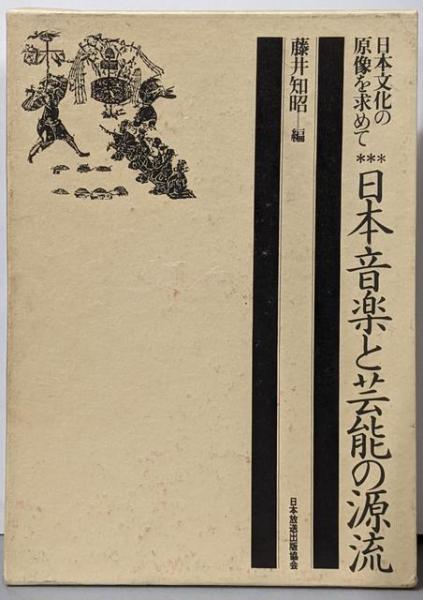 日本文化の
原像を求めて
***日本音楽と芸能の源流
藤井知昭—編
日本放送出版協会